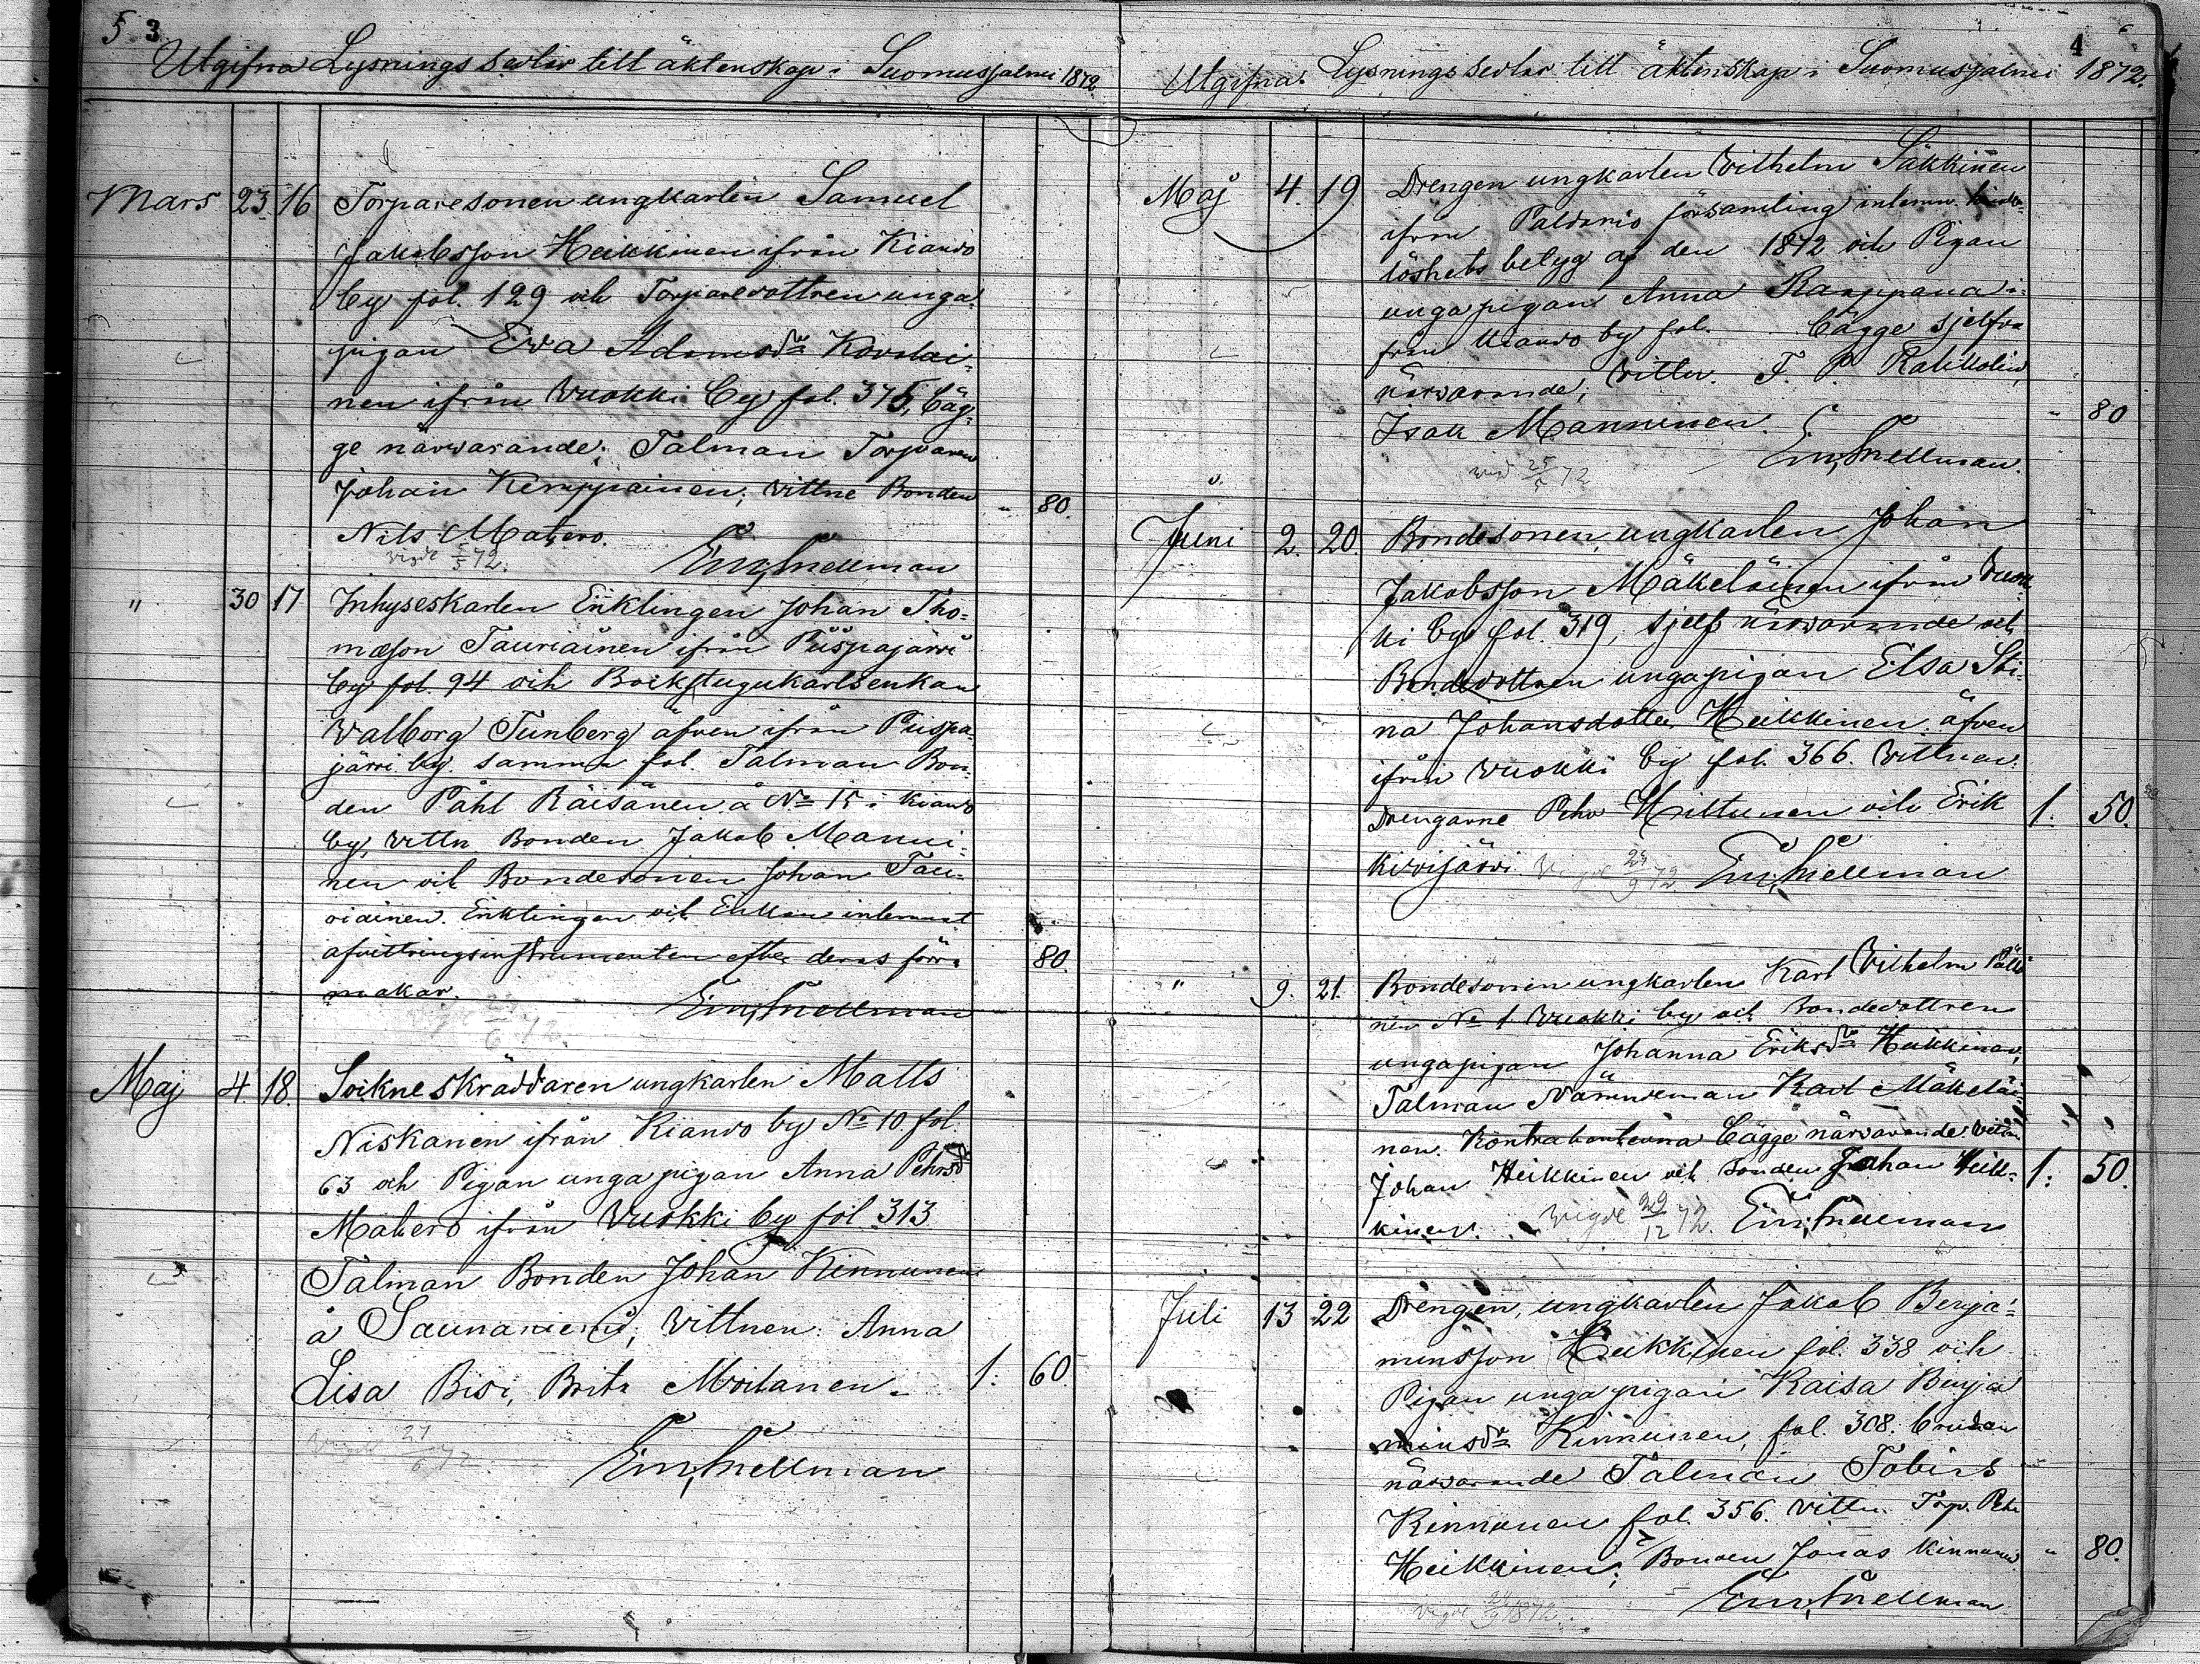 5 3
Utgifna Lysnings sedlar till äktenskap i Suomussjalmi 1872.
Mars 23. 16 Torparesonen ungkarlen Samuel
Jakobsson Heikkinen ifrån Kiando
by fol. 129 och Torparedottren unga
pigan Eva Adamsdr Kovalai-
nen ifrån Vuokki by fol. 375, bäg-
ge närvarande; Talman Torparen
Johan Kemppainen; vittne Bonden - 80.
Nils Mahero.
Vigde 5/5 72. Em. Snellman
" 30 17 Inhyseskarlen Enklingen Johan Tho-
mæson Tauriainen ifrån Piispajärvi
by fol. 94 och Backstugukarlsenkan
Valborg Tunberg äfven ifrån Piispa-
järvi by samma fol. Talman Bon-
den Påhl Räisänen å No 15 i Kiando
by, vittn. Bonden Jakob Manni-
nen och Bondesonen Johan Tau-
riainen. Enklingen och Enkan
afvittringsinstrumenten efter deras förra 80.
makar. Em. Snellman
Vigde 6 72.
Maj 4. 18. Sockneskräddaren ungkarlen Matts
Niskanen ifrån Kiando by No 10. fol.
63 och Pigan unga pigan Anna Pehrsdr
Mahero ifrån Vuokki by fol. 313
Talman Bonden Johan Kinnunen
å Saunaniemi; Vittnen: Anna
Lisa Bisi, Brita Moilanen. 1: 60.
Vigde 21/6 72.
Em. Snellman
4
Utgifna Lysningssedlar till äktenskap i Suomussjalmi 1872.
Maj 4. 19 Drengen ungkarlen Vilhelm Säkkinen
ifrån Paldamo församling
löshets betyg af den 1872 och Pigan
unga pigan Anna Karppana i-
från Kiando by fol. bägge sjelfva
närvarande; vittn. T. P.
Isak Manninen. " 80
Em. Snellman.
25/5 72
Juni 2. 20. Bondesonen, ungkarlen Johan
Jakobsson Mäkeläinen ifrån Vuok-
ki by fol. 319, sjelf närvarande och
Bondedottren unga pigan Elsa Sti-
na Johansdotter Heikkinen äfven
ifrån Vuokki by fol. 366. Vittnen:
Drengarne Pehr Hiltunen och Erik 1. 50.
Kivijärvi. Vigde 9 72 Em. Snellman
" 9. 21. Bondesonen ungkarlen Karl Vilhelm
nen No 1 Vuokki by och Bondedottren
ungapigan Johanna Eriksdr Heikkinen,
Talman Nämndeman Karl Mäkeläi-
nen. Kontrahenterna bägge närvarande. Vittn.
Johan Heikkinen och Bonden Johan Heik- 1: 50.
kinen. Vigde 29/12 72. Em. Snellman
Juli 13 22 Drengen, ungkarlen Jakob Benja-
minsson Heikkinen fol. 338 och
Pigan unga pigan Kaisa Benja
minsdr Kinnunen, fol. 308. bruden
närvarande Talman Tobias
Kinnunen fol. 356. Vittn. Torp. Pehr
Heikkinen; Bonden Jonas Kinnunen " 80.
Em. Snellman
Vigde